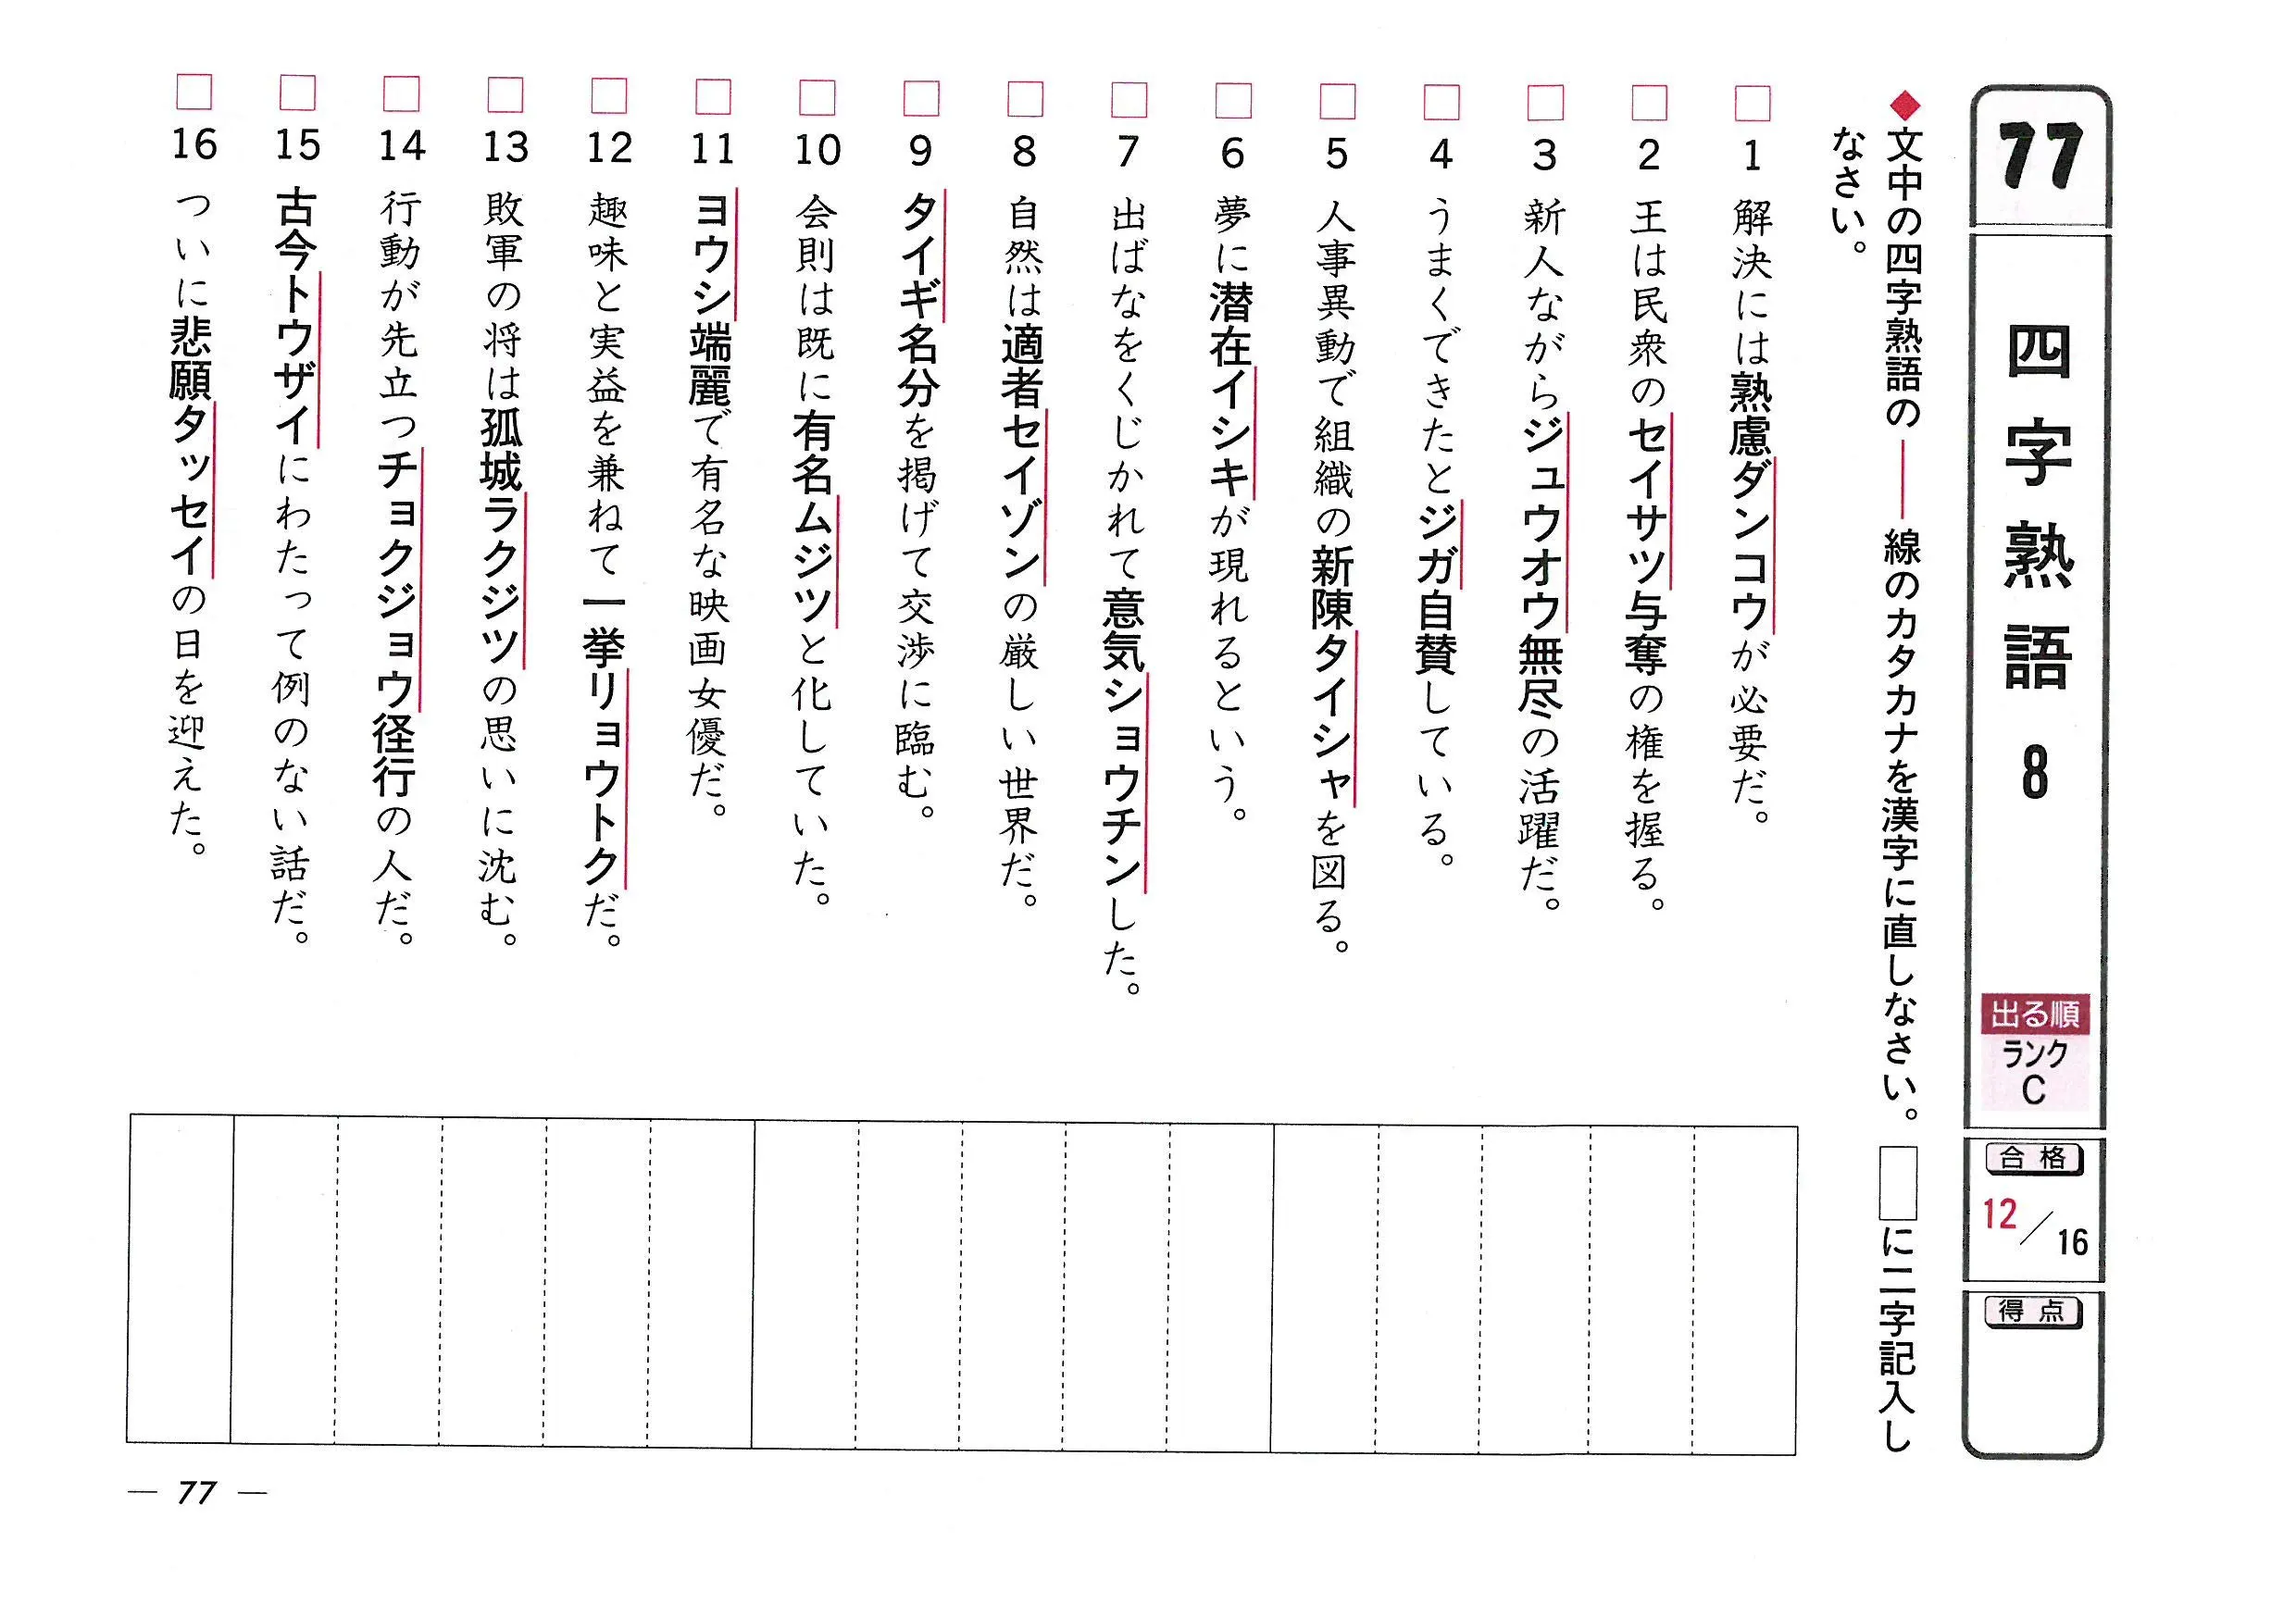 77
四字熟語 8
出る順
ランク
C
合格
12/16
得点
◆文中の四字熟語の――線のカタカナを漢字に直しなさい。□に二字記入し
なさい。
□1 解決には熟慮ダンコウが必要だ。
□2 王は民衆のセイサツ与奪の権を握る。
□3 新人ながらジュウオウ無尽の活躍だ。
□4 うまくできたとジガ自賛している。
□5 人事異動で組織の新陳タイシャを図る。
□6 夢に潜在イシキが現れるという。
□7 出ばなをくじかれて意気ショウチンした。
□8 自然は適者セイゾンの厳しい世界だ。
□9 タイギ名分を掲げて交渉に臨む。
□10 会則は既に有名ムジツと化していた。
□11 ヨウシ端麗で有名な映画女優だ。
□12 趣味と実益を兼ねて一挙リョウトクだ。
□13 敗軍の将は孤城ラクジツの思いに沈む。
□14 行動が先立つチョクジョウ径行の人だ。
□15 古今トウザイにわたって例のない話だ。
□16 ついに悲願タッセイの日を迎えた。
― 77 ―